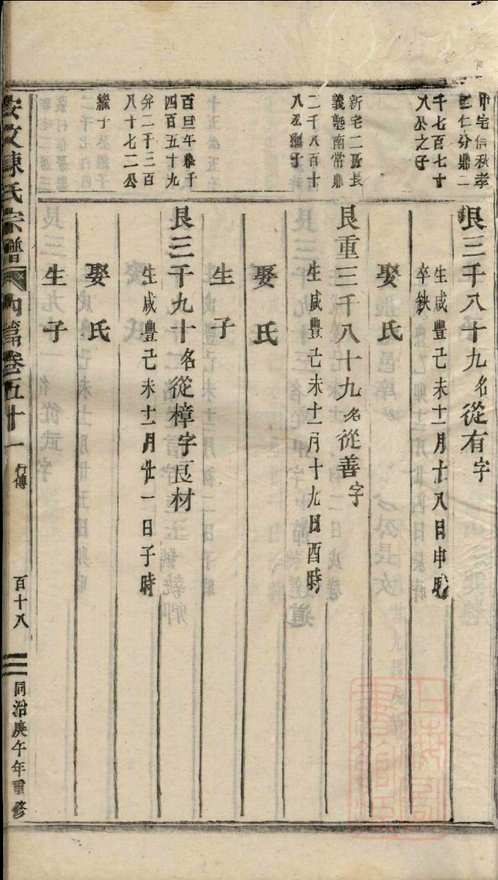 甲宅信秋孝
仁分鼎二
千七百七十
八公之子
艮三千八十九名從有字
生咸豐己未十一月十八日申時
卒缺
娶氏
新宅二區長
義塾南常鼎
二千八百十
八公繼子
艮重三千八十九名從善字
生咸豐己未十一月十九日酉時
娶氏
生子
百旦午鼎千
四百五十九
弁二千三百
八十七二公
繼子
艮三千九十名從樟字良材
生咸豐己未十一月廿一日子時
娶氏
生子
安文陳氏宗譜
內篇卷五十一
行傳
百十八
同治庚午年重修